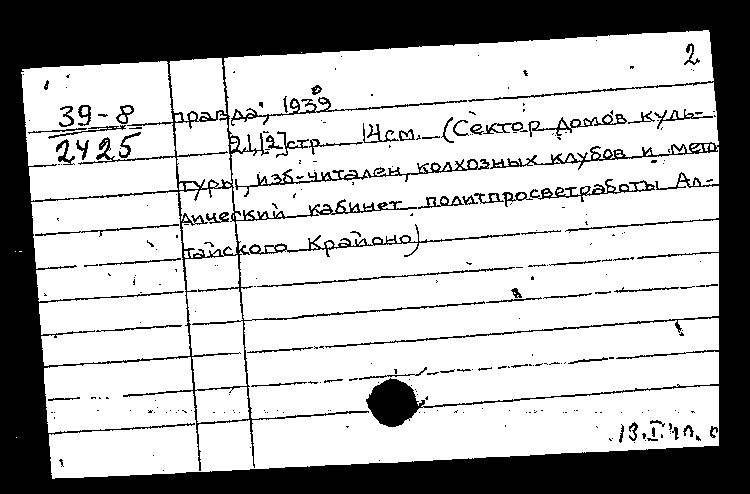 2
39-8
2425
правда", 1939
21,[2]стр. 14см. (Сектор домов куль-
туры, изб-читален, колхозных клубов и мето-
дический кабинет политпросветработы Ал-
тайского Крайоно)
13.I.40.